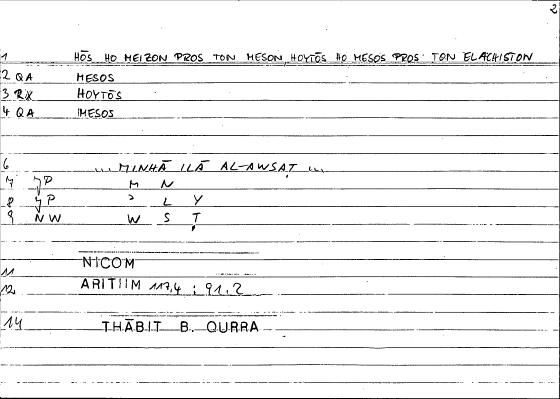 2
1 HŌS HO MEIZON PROS TON MESON, HOYTŌS HO MESOS PROS TON ELACHISTON
2 QA MESOS
3 RX HOYTŌS
4 QA MESOS
6 ... MINHĀ ILĀ AL-AWSAṬ ...
7 JP M N
8 JP ʾ L Y
9 NW W S Ṭ
NICOM
11
12 ARITIIM 117,4 ; 91.2
14 THĀBIT B. QURRA